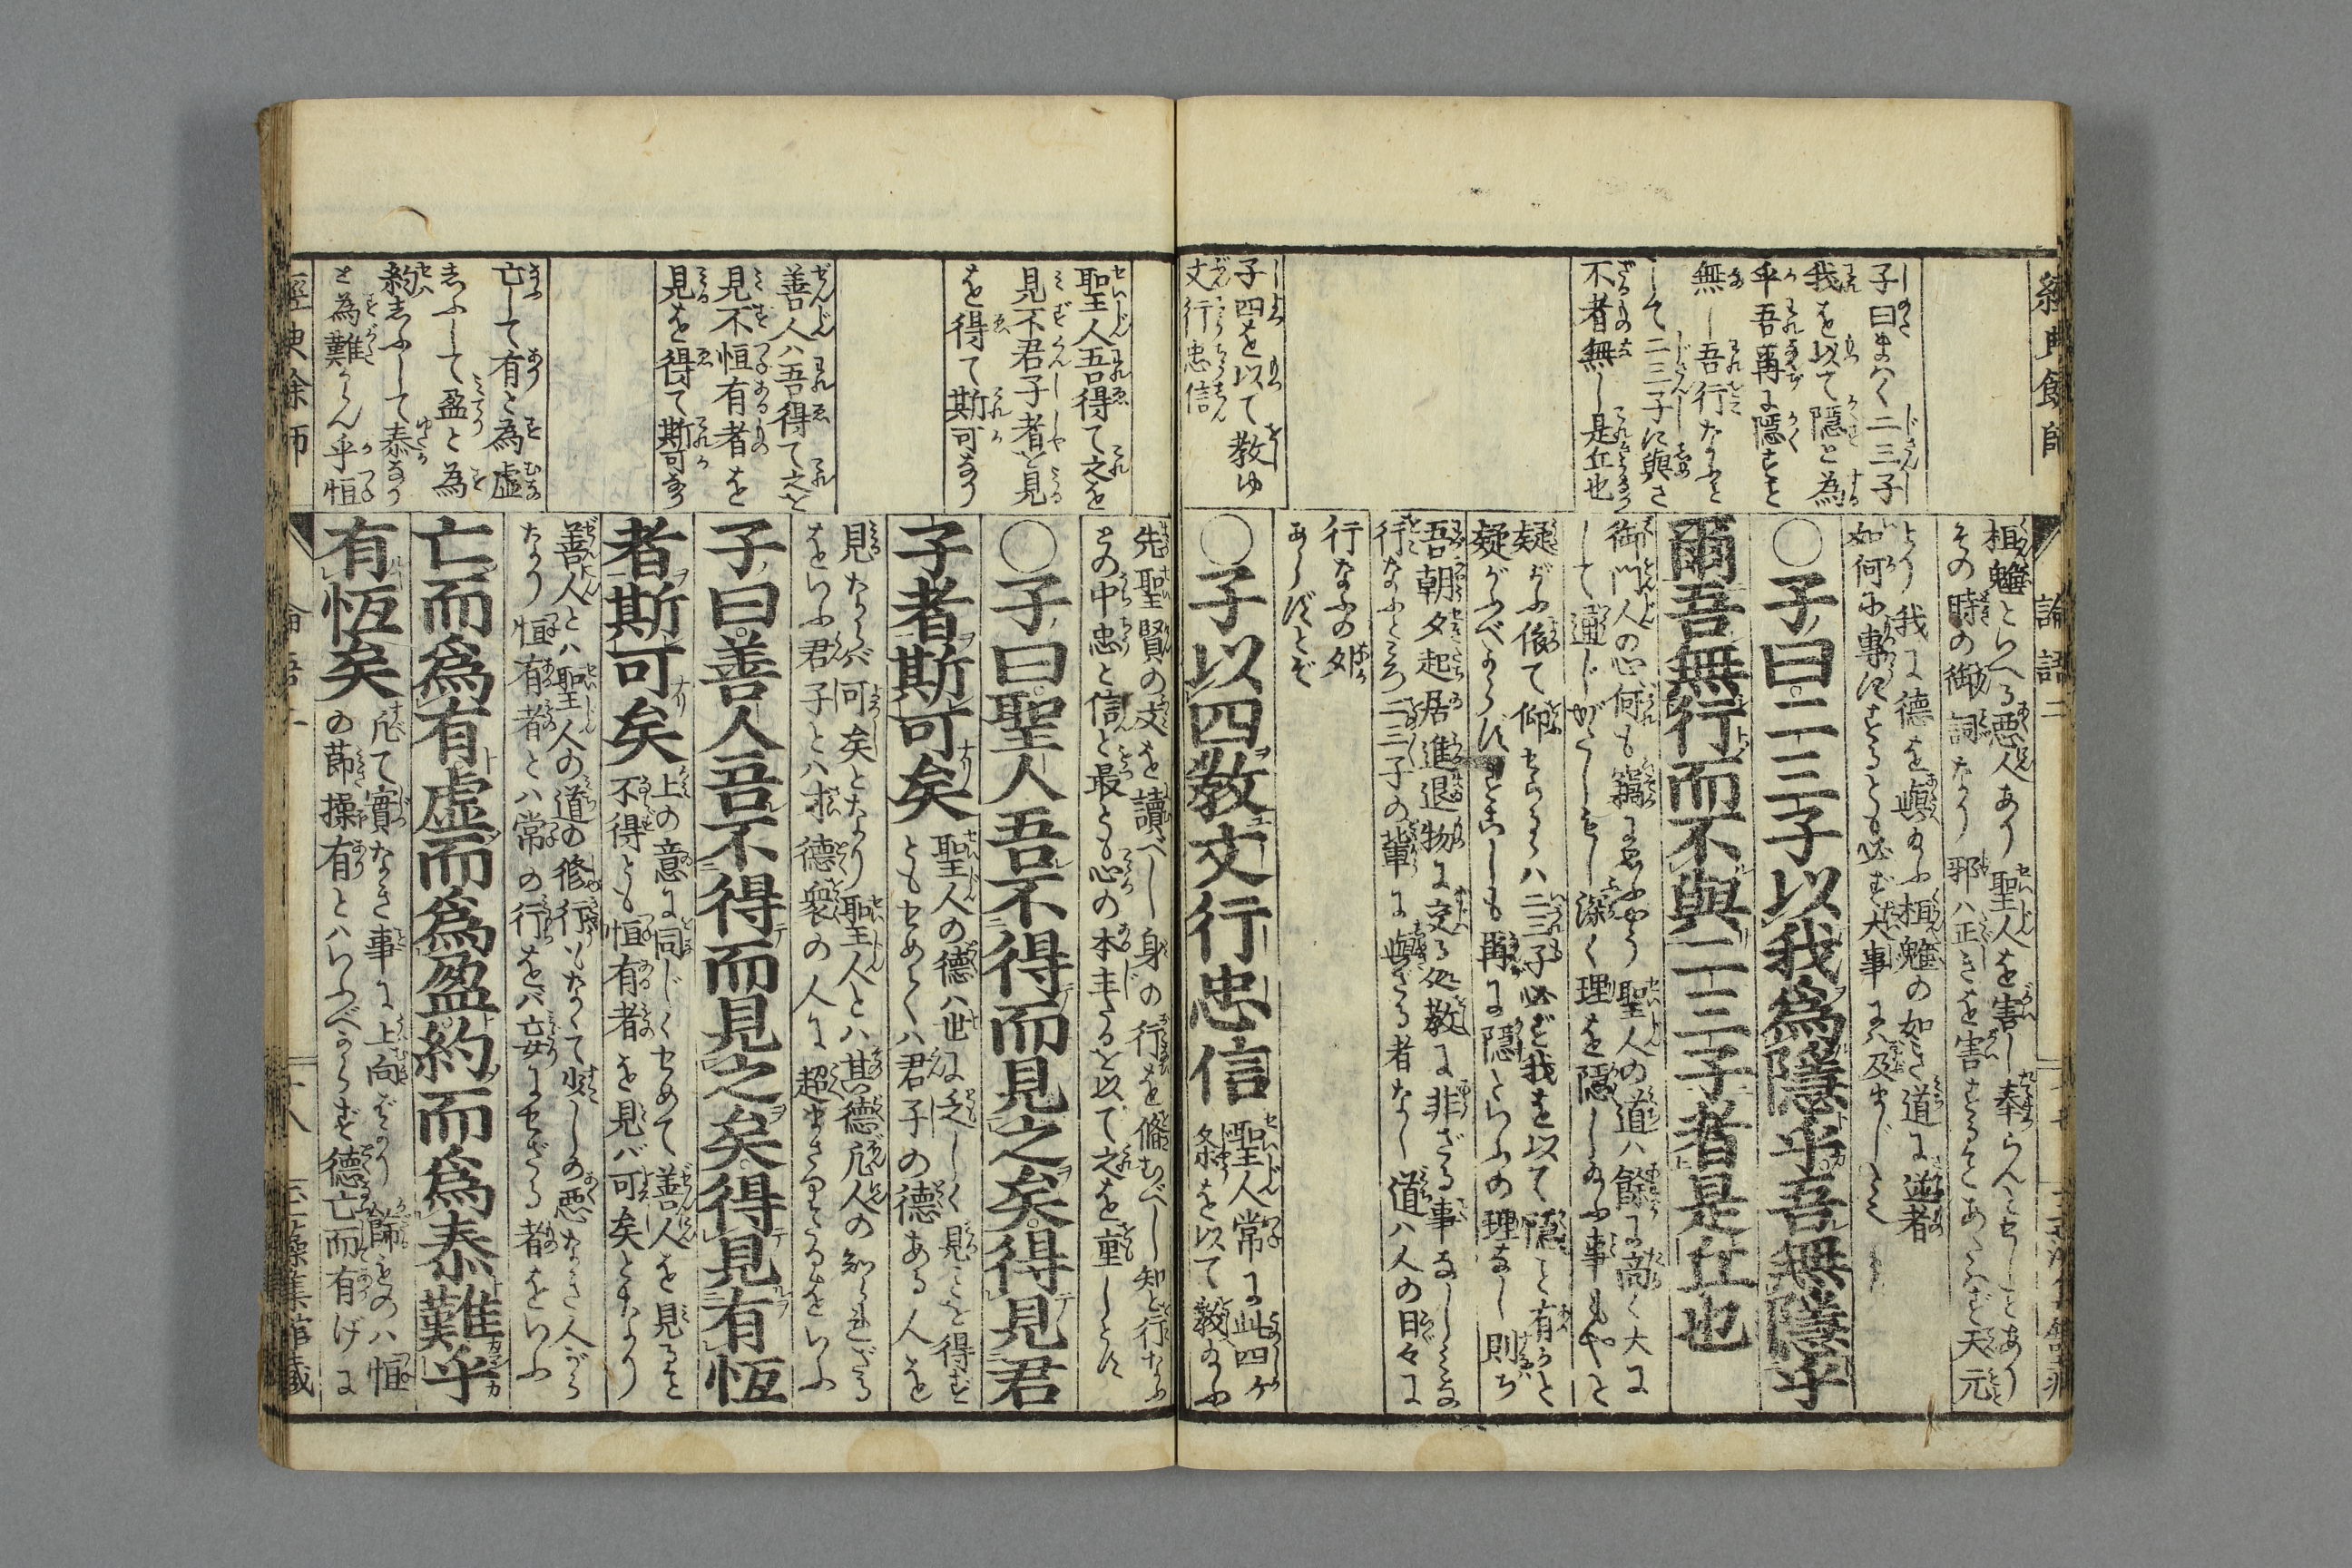 經典餘師
子曰く二三子
我を以て隠と為
乎吾爾に隠すこと
無し吾行なふと
して二三子に與さ
不者無し是丘也
子四を以て教ゆ
文行忠信
論語二
桓魋といへる悪人あり聖人を害し奉らんとせしことあり
その時の御詞なり邪ハ正しきを害することあたハず天元
より我に徳を與給ふ桓魋の如き道に逆者
如何に専にするとも必ず大事にハ及まじとぞ
○子曰二三子以我爲隱乎吾無隱乎
爾吾無行而不與二三子者是丘也
御門人の心何も窺に思ふやう聖人の道ハ餘に高く大に
して通じがたしもし深く理を隠し給ふ事もやと
疑がふ依て仰せらるハ二三子必ず我を以て隠こと有かと
疑がふべからずすこしも爾に隠といふの理なし則ち
吾朝夕起居進退物に交る処教に非ざる事なししかるに
行なふところ二三子の輩に與ざる者なし道ハ人の日々に
行なふの外
あらずとぞ
○子以四敎文行忠信
聖人常に此四ケ
条を以て教給ふ
聖人吾得て之を
見不君子者を見
を得て斯可なり
善人ハ吾得て之を
見不恒有者を
見を得て斯可なり
亡して有と為虚
ふして盈と為
約ふして泰なり
と為難からん乎恒
先聖賢の文を讀べし身の行を脩むべし知と行なふ
との中忠と信と最とも心の本主たるを以て之を重しとす
○子曰聖人吾不得而見之矣得見君
子者斯可矣
聖人の徳ハ世に乏しく見ことを得ず
ともせめてハ君子の徳ある人を
見たらバ可矣となり聖人とハ其徳凡人の知られざる
をいふ君子とハ才徳衆の人に超まさりたるをいふ
子曰善人吾不得而見之矣得見有恆
者斯可矣
上の意に同じくせめて善人を見ること
不得とも恒有者を見バ可矣となり
善人とハ聖人の道の修行もなくて少しの悪なき人がら
なり恒有者とハ常の行をバ妄にせざる者をいふ
亡而爲有虛而爲盈約而爲泰難乎
有恆矣
凡て實なき事に上向ばかり飾ものハ恒
の節操有とハいふべからず徳亡而有げに
經典餘師